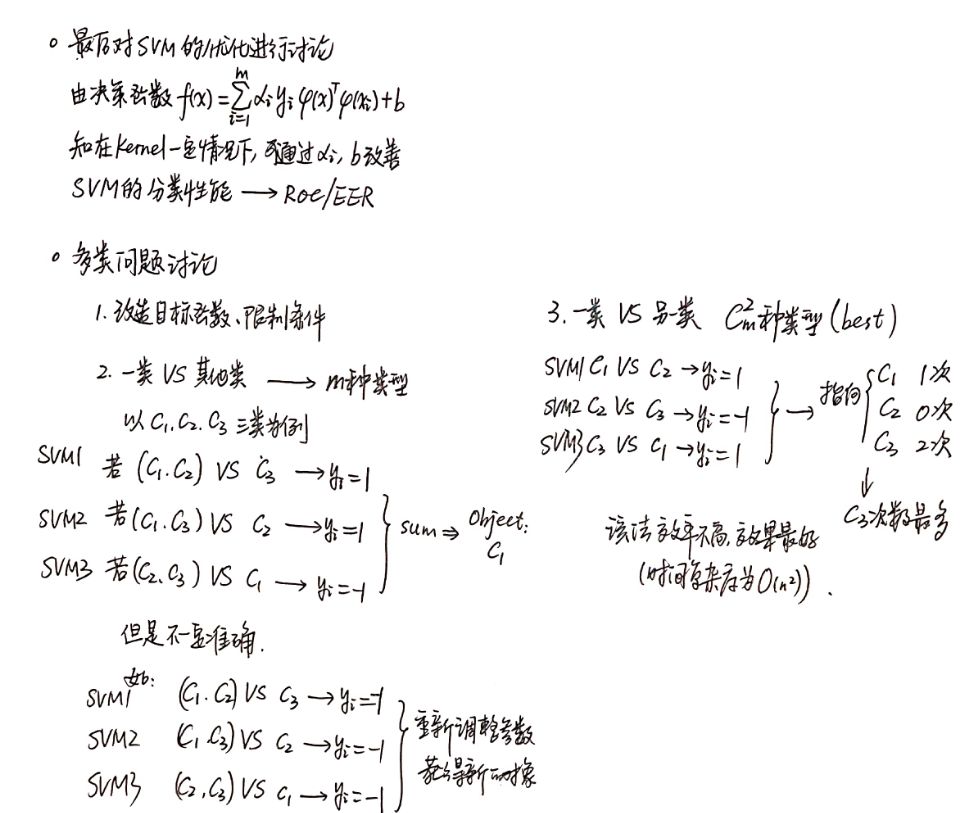 最后对SVM的优化进行讨论
由决策函数 f(x)=∑_{i=1}^{m} αᵢyᵢφ(x)ᵀφ(xᵢ)+b
知在Kernel一定情况下,可通过αᵢ,b改善
SVM的分类性能 → ROC/EER
多类问题讨论
1. 改造目标函数、限制条件
2. 一类 VS 其他类 → m种类型
以C₁.C₂.C₃三类为例
SVM1 若 (C₁.C₂) VS C₃ → yᵢ=1
SVM2 若(C₁.C₃) VS C₂ → yᵢ=1
SVM3 若(C₂.C₃) VS C₁ → yᵢ=-1
sum ⇒ Object: C₁
但是不一定准确.
如:
SVM1 (C₁.C₂) VS C₃ → yᵢ=-1
SVM2 (C₁.C₃) VS C₂ → yᵢ=-1
SVM3 (C₂,C₃) VS C₁ → yᵢ=-1
重新调整参数
3. 一类 VS 另类 C²ₘ种类型(best)
SVM1 C₁ VS C₂ → yᵢ=1
SVM2 C₂ VS C₃ → yᵢ=-1
SVM3 C₃ VS C₁ → yᵢ=1
→ 指向
C₁ 1次
C₂ 0次
C₃ 2次
↓
C₃次数最多
该法效率不高,效果最好
(时间复杂度为O(n²)).